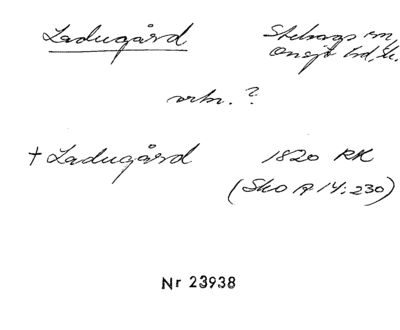 Ladugård Stehags sn,
Onsjö hd, Sk.
ortn. ?
† Ladugård 1820 RK
(SkO A 14:230)
Nr 23938